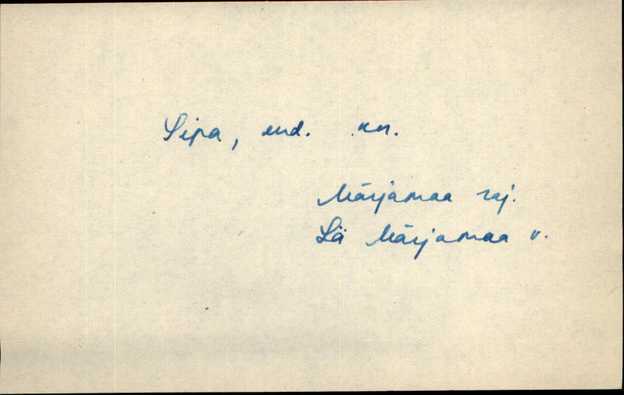 Sipa, end. kn.
Märjamaa raj.
Lä Märjamaa v.